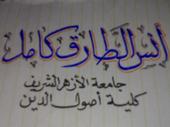 أنس الطارق كامل
جامعة الأزهر الشريف
كلية أصول الدين